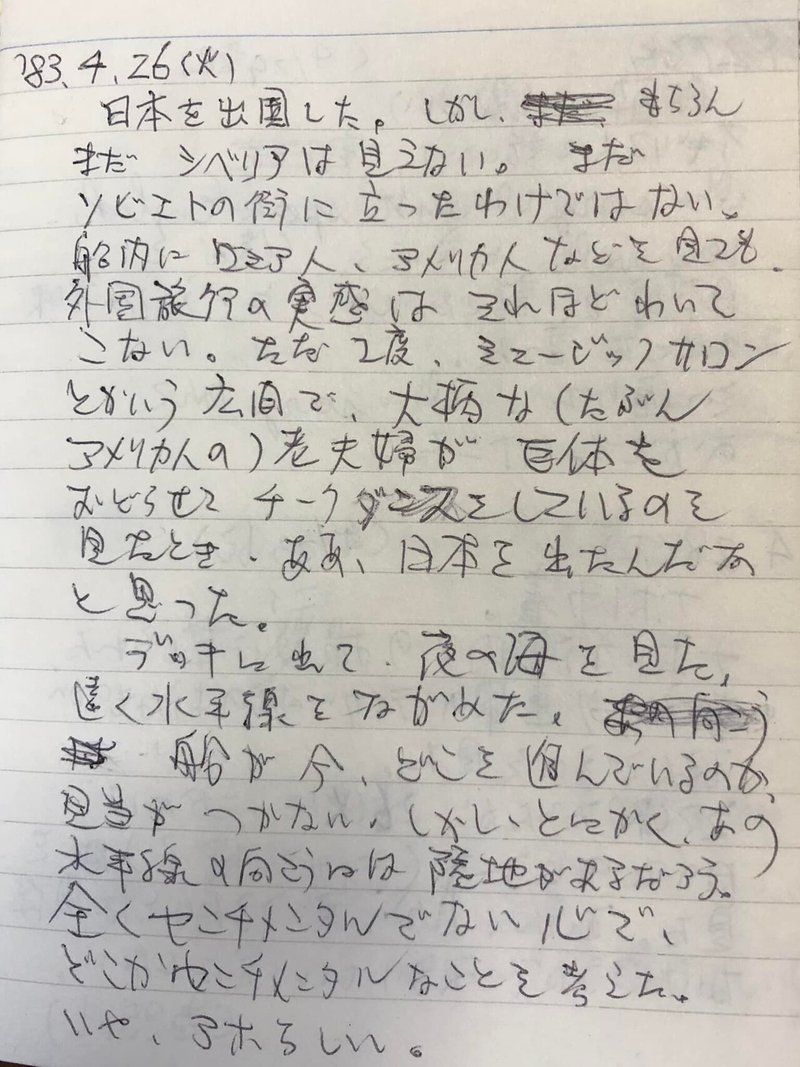 '83.4.26(火)
日本を出国した。しかし、もちろん
まだ シベリアは見えない。 まだ
ソビエトの街に立ったわけではない。
船内にロシア人、アメリカ人などを見ても、
外国旅行の実感は それほどわいて
こない。ただ 1度、ミュージックサロン
とかいう広間で、大柄な(たぶん
アメリカ人の)老夫婦が 巨体を
おどらせて チークダンスをしているのを
見たとき、ああ、日本を出たんだな
と思った。
デッキに出て、夜の海を見た。
遠く水平線をながめた。
船が今、どこを進んでいるのか、
見当がつかない。しかしとにかく、あの
水平線の向こうには 陸地があるだろう。
全くセンチメンタルでない心で、
どこかセンチメンタルなことを考えた。
いや、アホらしい。